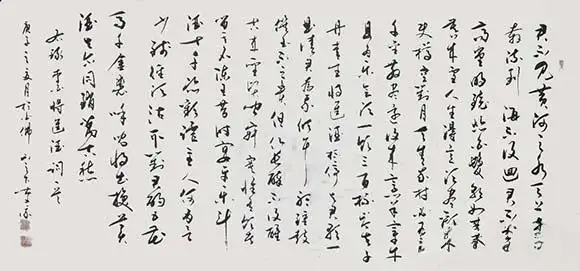 君不见黄河之水天上来奔
流到海不复回君不见
高堂明镜悲白发朝如青丝暮
成雪人生得意须尽欢莫
使樽空对月天生我材必有用
千金散尽还复来烹羊宰牛
且为乐会须一饮三百杯岑夫子
丹丘生将进酒杯莫停与君歌一
曲请君为余倾耳听钟鼓
馔玉不足贵但愿长醉不复醒
古来圣贤皆寂寞惟有饮者
留其名陈王昔时宴平乐斗
酒十千恣欢谑主人何为言
少钱径须沽取对君酌五花
马千金裘呼儿将出换美
酒与尔同销万古愁
右录李白将进酒词一首
庚子之五月于